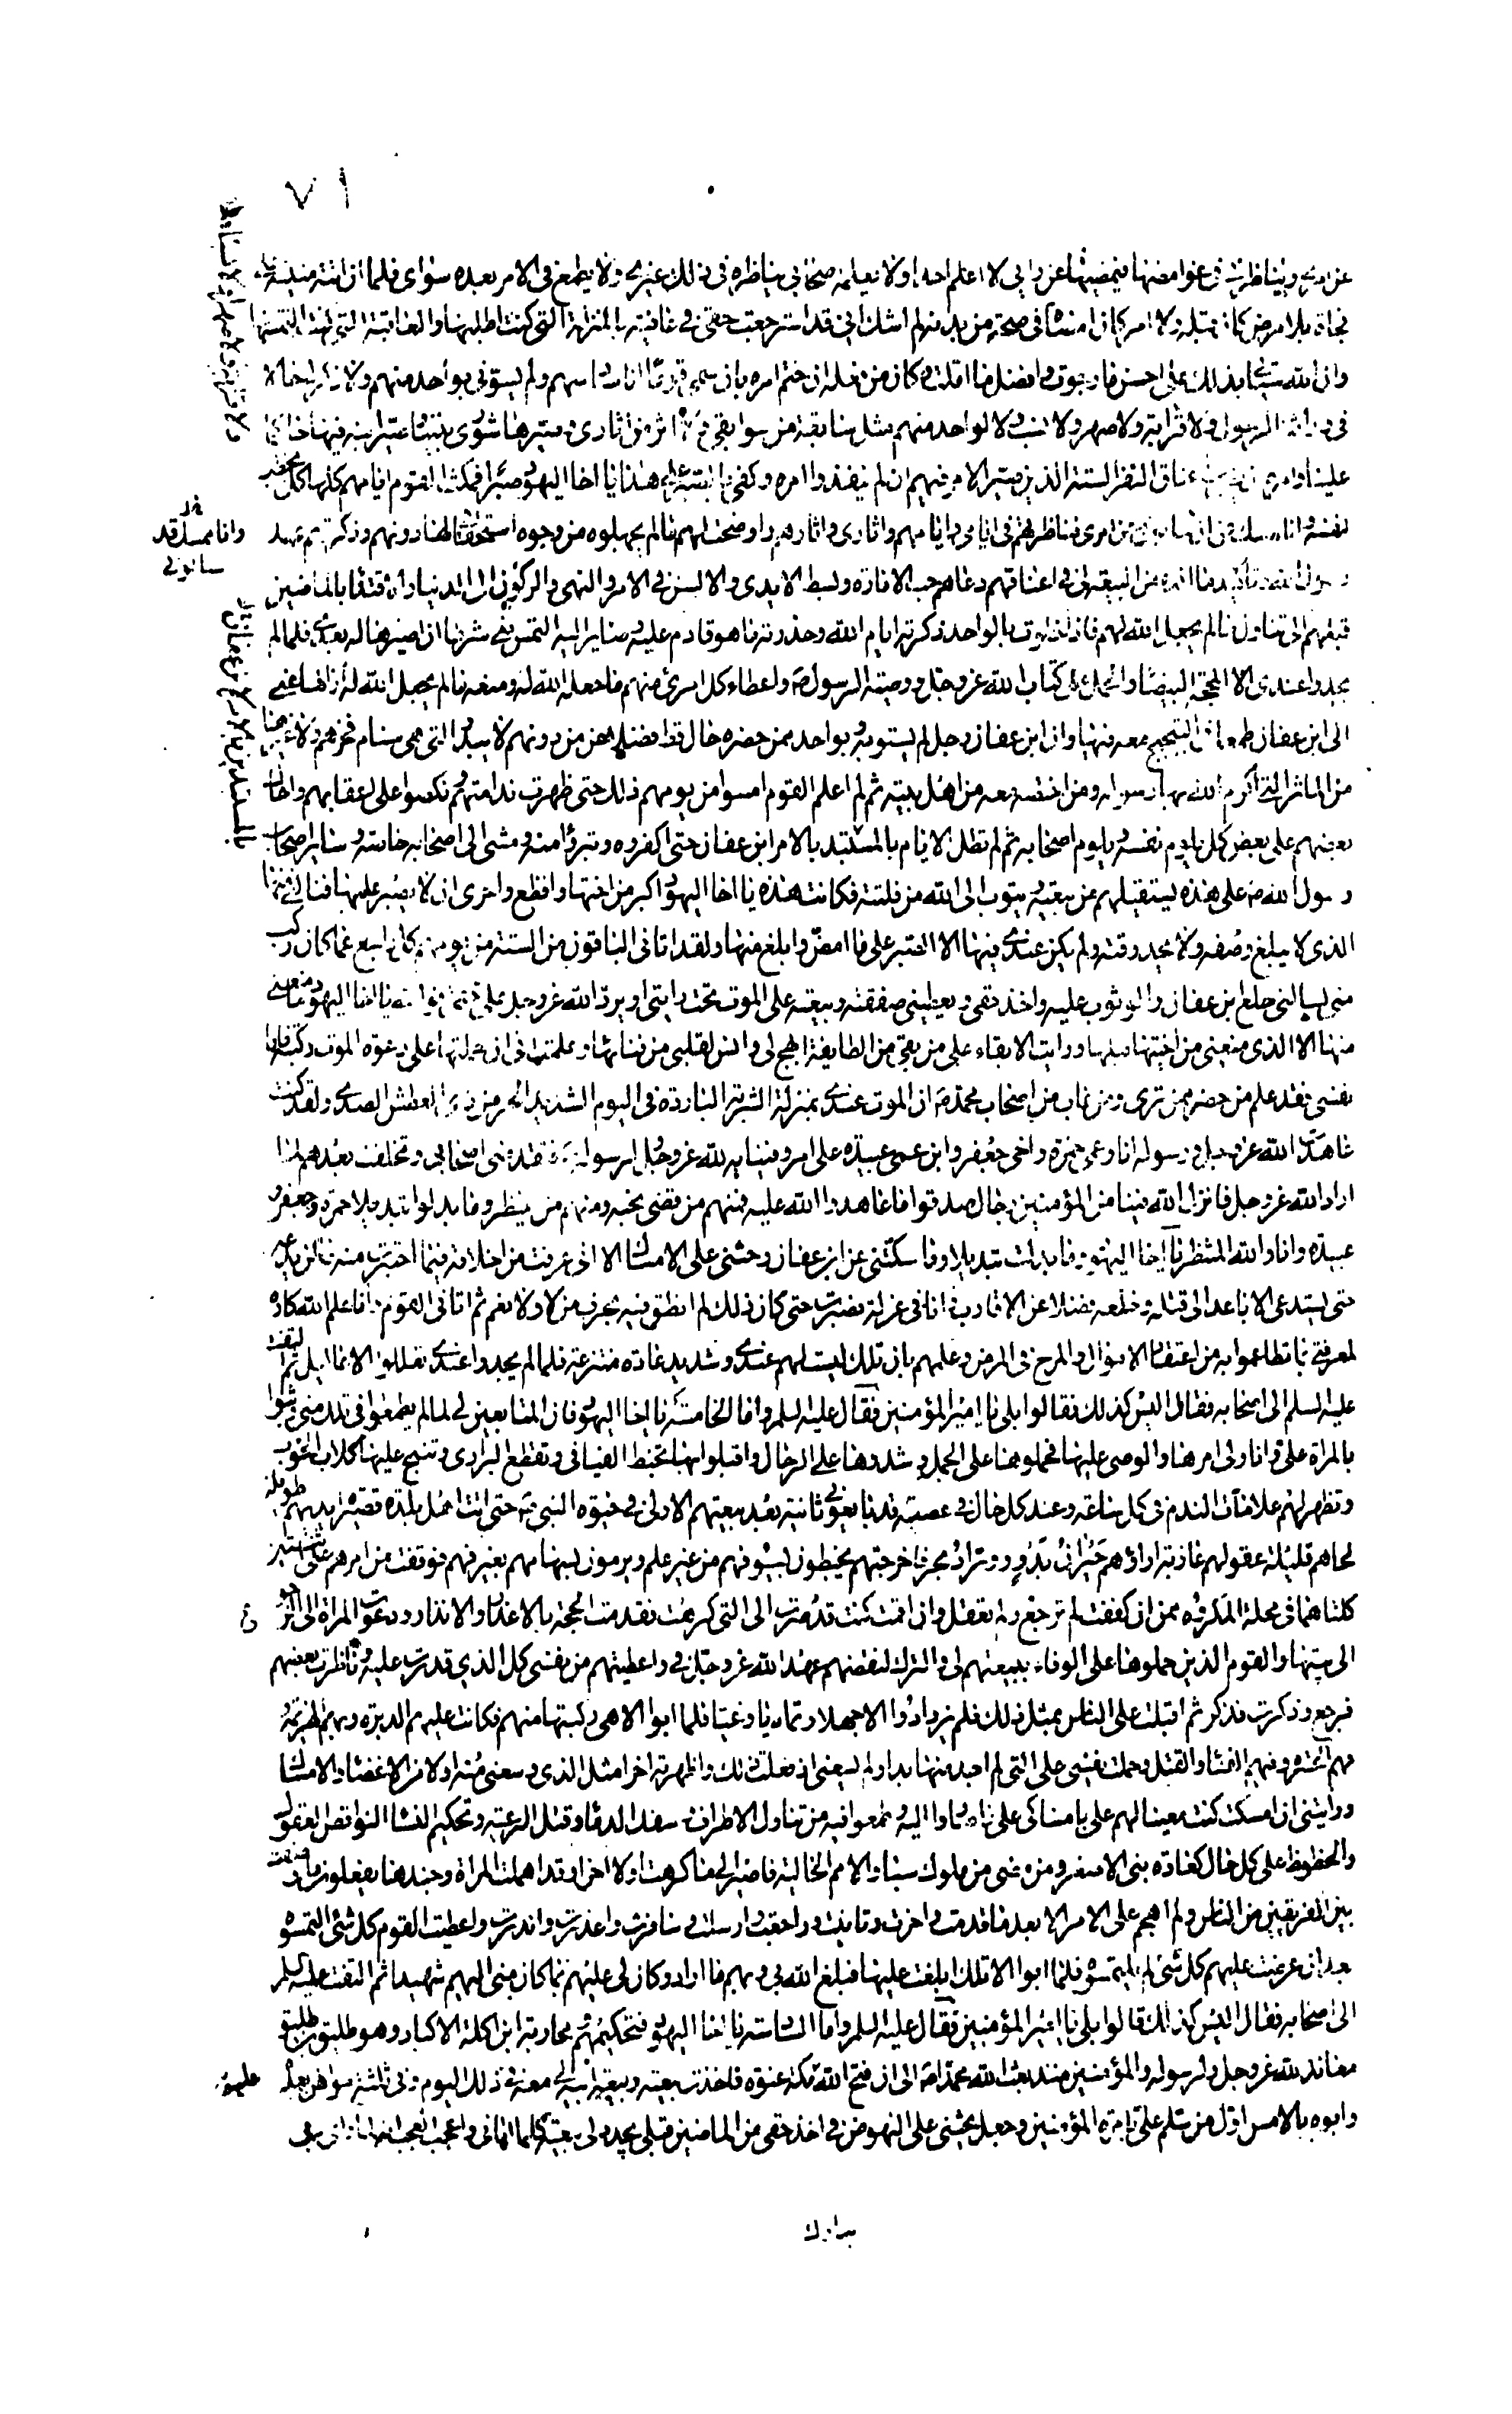 ٧١
عن رأيي ويناظرني في غوامضها فيمضيها عن رأيي لا اعلم احدا ولا يعلمه صحابي يناظره في ذلك غيري ولا يطمع في الامر بعده سواي فلما ان اتته منيته على
فجأة بلا مرض كان قبله ولا امر كان امضاه في صحة من بدنه لم اشك اني قد استرجعت حقي في عافية بالمنزلة التي كنت اطلبها والعاقبة التي كنت التمسها
وان الله سيأتي بذلك على احسن ما رجوت وافضل ما املت وكان من فعله ان ختم امره بان سمى قوما انا سادسهم ولم يستوني بواحد منهم ولا ذكر لي حالا
في وراثة الرسول ولا قرابة ولا صهر ولا نسب ولا لواحد منهم مثل سابقة من سوابقي ولا اثر من اثاري وصيرها شورى بيننا وصير ابنه فيها حاكما
علينا وامره ان يضرب اعناق النفر الستة الذين صير الامر فيهم ان لم ينفذوا امره وكفى بالصبر على هذا يا اخا اليهود صبرا فمكث القوم ايامهم كلها كل يخطب
لنفسه وانا ممسك عن ان سألوني عن امري فناظرتهم في ايامي وايامهم واثاري واثارهم واوضحت لهم ما لم يجهلوه من وجوه استحقاقي لها دونهم وذكرتهم عهد
رسول الله اليهم وتأكيد ما اكده من البيعة لي في اعناقهم دعاهم حب الامارة وبسط الايدي والالسن في الامر والنهي والركون الى الدنيا والاقتداء بالماضين
قبلهم الى تناول ما لم يجعل الله لهم فاذا خلوت بالواحد ذكرته ايام الله وحذرته ما هو قادم عليه وصاير اليه التمس مني شرطا ان اصيرها له بعدي فلما لم
يجدوا عندي الا المحجة البيضاء والحمل على كتاب الله عز وجل ووصية الرسول ص واعطاء كل امرئ منهم ما جعله الله له ومنعه ما لم يجعل الله له ازالها عني
الى ابن عفان طمعا في التبحبح معه فيها وابن عفان رجل لم يستو به وبواحد ممن حضره حال قط فضلا عمن دونهم لا ببدر التي هي سنام فخرهم ولا غيرها
من المآثر التي اكرم الله بها رسوله ومن اختصه معه من اهل بيته ثم لم اعلم القوم امسوا من يومهم ذلك حتى ظهرت ندامتهم ونكصوا على اعقابهم واحال
بعضهم على بعض كل يلوم نفسه ويلوم اصحابه ثم لم تطل الايام بالمستبد بالامر ابن عفان حتى اكفروه وتبرؤا منه ومشى الى اصحابه خاصة وساير اصحاب
رسول الله ص على هذه يستقيلهم من بيعته ويتوب الى الله من فلتته فكانت هذه يا اخا اليهود اكبر من اختها وافظع واحرى ان لا يصبر عليها فنالني منها
الذي لا يبلغ وصفه ولا يحد وقته ولم يكن عندي فيها الا الصبر على ما امض وابلغ منها ولقد اتاني الباقون من الستة من يومهم كل راجع عما كان ركب
مني يسألني خلع ابن عفان والوثوب عليه واخذ حقي ويعطيني صفقته وبيعته على الموت تحت رايتي او يرد الله عز وجل علي حقي فوالله يا اخا اليهود ما منعني
منها الا الذي منعني من اختيها قبلها ورايت الابقاء على من بقي من الطايفة ابهج لي وانس لقلبي من فنائها وعلمت اني ان حملتها على دعوة الموت ركبته فاما
نفسي فقد علم من حضر ممن ترى ومن غاب من اصحاب محمد ص ان الموت عندي بمنزلة الشربة الباردة في اليوم الشديد الحر من ذي العطش الصدي ولقد كنت
عاهدت الله عز وجل ورسوله انا وعمي حمزة واخي جعفر وابن عمي عبيدة على امر وفينا به لله عز وجل ولرسوله فتقدمني اصحابي وتخلفت بعدهم لما
اراد الله عز وجل فانزل الله فينا من المؤمنين رجال صدقوا ما عاهدوا الله عليه فمنهم من قضى نحبه ومنهم من ينتظر وما بدلوا تبديلا حمزة وجعفر و
عبيدة وانا والله المنتظر يا اخا اليهود وما بدلت تبديلا وما سكتني عن ابن عفان وحثني على الامساك الا اني عرفت من اخلاقه فيما اختبرت منه بما لن يدعه
حتى يستدعي الاباعد الى قتله وخلعه فضلا عن الاقارب وانا في عزلة فصبرت حتى كان ذلك لم انطق فيه بحرف من لا ولا نعم ثم اتاني القوم وانا علم الله كاره
لمعرفتي بما تطاعموا به من اعتقال الاموال والمرح في الارض وعلمهم بان تلك ليست لهم عندي وشديد عادة منتزعة فلما لم يجدوا عندي تعللوا الاعاليل ثم التفت
عليه السلم الى اصحابه فقال اليس كذلك فقالوا بلى يا امير المؤمنين فقال عليه السلم واما الخامسة يا اخا اليهود فان المتابعين لي لما لم يطمعوا في تلك مني وثبوا
بالمرأة علي وانا ولي امرها والوصي عليها فحملوها على الجمل وشدوها على الرحال واقبلوا بها تخبط الفيافي وتقطع البراري وتنبح عليها كلاب الحوءب
وتظهر لهم علامات الندم في كل ساعة وعند كل حال في عصبة قد بايعوني ثانية بعد بيعتهم الاولى في حيوة النبي ص حتى اتت اهل بلدة قصيرة ايديهم طويلة
لحاهم قليلة عقولهم عازبة اراؤهم جيران بدو ووراد بحر فاخرجتهم يخبطون بسيوفهم من غير علم ويرمون بسهامهم بغير فهم فوقفت من امرهم على اثنتين
كلتاهما في محلة المكروه ممن ان كففت لم ترجع ولم تعقل وان اقمت كنت قد صرت الى التي كرهت فقدمت الحجة بالاعذار والانذار ودعوت المرأة الى الرجوع
الى بيتها والقوم الذين حملوها على الوفاء ببيعتهم لي والترك لنقضهم عهد الله عز وجل في واعطيتهم من نفسي كل الذي قدرت عليه وناظرت بعضهم
فرجع وذكرت فذكر ثم اقبلت على الناس بمثل ذلك فلم يزدادوا الا جهلا وتماديا وغيا فلما ابوا الا هي ركبتها منهم فكانت عليهم الدبرة وبهم الهزيمة
ولهم الحسرة وفيهم الفناء والقتل وحملت نفسي على التي لم اجد منها بدا ولم يسعني اذ فعلت ذلك واظهرته اخرا مثل الذي وسعني منه اولا من الاغضاء والامساك
ورايتني ان امسكت كنت معينا لهم علي بامساكي على ما صاروا اليه وطمعوا فيه من تناول الاطراف وسفك الدماء وقتل الرعية وتحكيم النساء النواقص العقول
والحظوظ على كل حال كعادة بني الاصفر ومن مضى من ملوك سبا والامم الخالية فاصير الى ما كرهت اولا اخرا وقد اهملت المرأة وجندها يفعلون ما وصفت
بين الفريقين من الناس ولم اهجم على الامر الا بعد ما قدمت واخرت وتانيت وراجعت وارسلت وسافرت واعذرت وانذرت واعطيت القوم كل شئ التمسوه
بعد ان عرضت عليهم كل شئ لم يلتمسوه فلما ابوا الا تلك اقدمت عليها فبلغ الله بي وبهم ما اراد وكان لي عليهم بما كان مني اليهم شهيدا ثم التفت عليه السلم
الى اصحابه فقال اليس كذلك قالوا بلى يا امير المؤمنين فقال عليه السلم واما السادسة يا اخا اليهود فتحكيمهم ومحاربة ابن اكلة الاكباد وهو طليق بن طليق
معاند لله عز وجل ولرسوله والمؤمنين منذ بعث الله محمدا ص الى ان فتح الله مكة عنوة فاخذت بيعته وبيعة ابيه لي معه في ذلك اليوم وفي ثلثة مواطن بعده
وابوه بالامس اول من سلم علي بامرة المؤمنين وجعل يحثني على النهوض في اخذ حقي من الماضين قبلي يجدد لي بيعته كلما اتاني واعجب العجب
وانا ممسك قد
سألوني